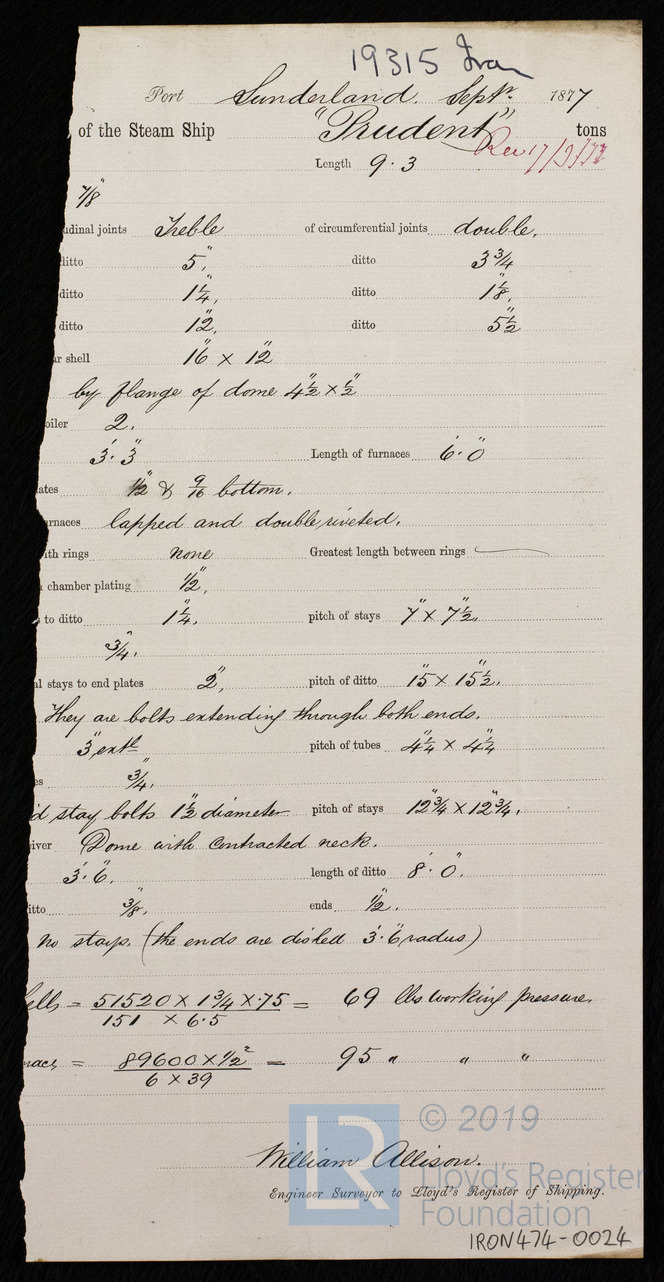 19315 Iron
Port Sunderland. Septr. 1877
of the Steam Ship "Prudent" tons
Length 9.3 Rec 17/9/77
7/8"
udinal joints Treble of circumferential joints double.
ditto 5", ditto 3 3/4"
ditto 1 1/4", ditto 1 1/8",
ditto 12", ditto 5 1/2"
r shell 16" x 12"
by flange of dome 4 1/2" x 1/2"
oiler 2.
3'.3" Length of furnaces 6'.0"
ates 1/2" & 9/16" bottom.
urnaces lapped and double riveted.
ith rings none Greatest length between rings
chamber plating 1/2",
to ditto 1 1/4", pitch of stays 7" x 7 1/2",
3/4".
al stays to end plates 2", pitch of ditto 15" x 15 1/2",
They are bolts extending through both ends.
3" extl pitch of tubes 4 1/4" x 4 1/4"
es 3/4",
d stay bolts 1 1/2" diameter pitch of stays 12 3/4" x 12 3/4",
iver Dome with contracted neck.
3'.6", length of ditto 8'.0".
itto 3/8", ends 1/2".
no stays. (the ends are dished 3'.6" radius)
ells = 51520 x 1 3/4 x .75 = 69 lbs working pressure
151 x 6.5
naces = 89600 x 1/2² = 95 " " "
6 x 39
© 2019
LR
William Allison.
Lloyd's Register
Engineer Surveyor to Lloyd's Register of Shipping.
Foundation
IRON474-0024